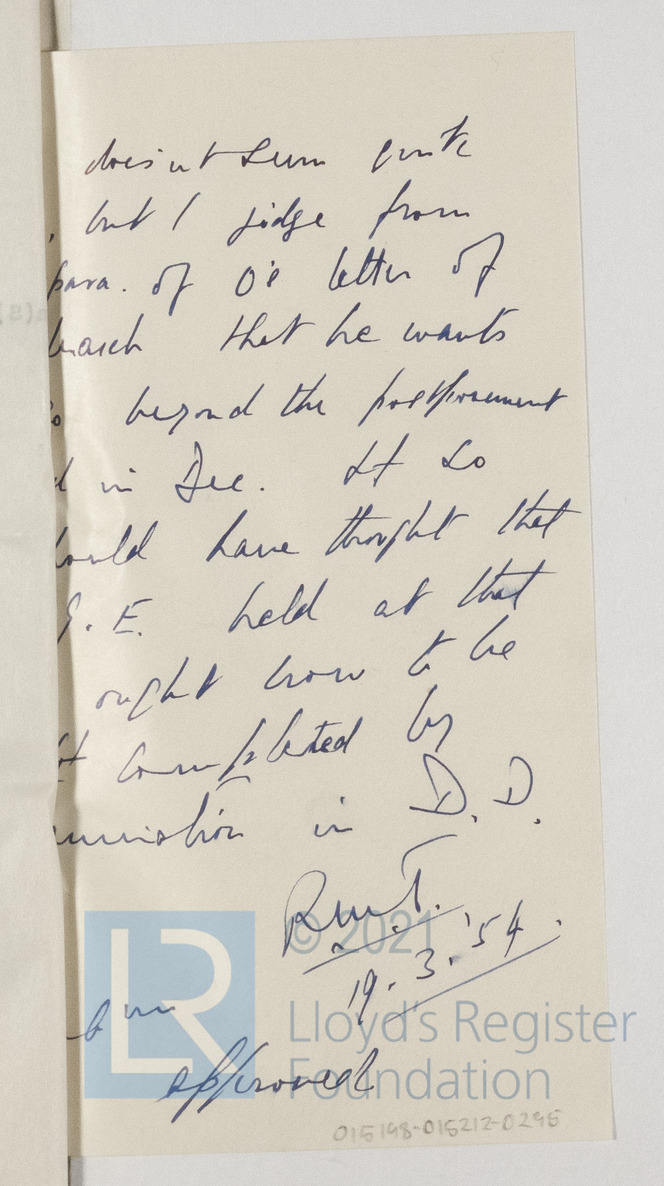 doesn't seem quite
, but I judge from
para. of O's letter of
March that he wants
beyond the postponement
d in Dec. If so
would have thought that
S.E. held at that
ought now to be
completed by
examination in D.D.
R.W.T.
19.3.'54.
approved
© 2021
LR
Lloyd's Register
Foundation
015198-015212-0295